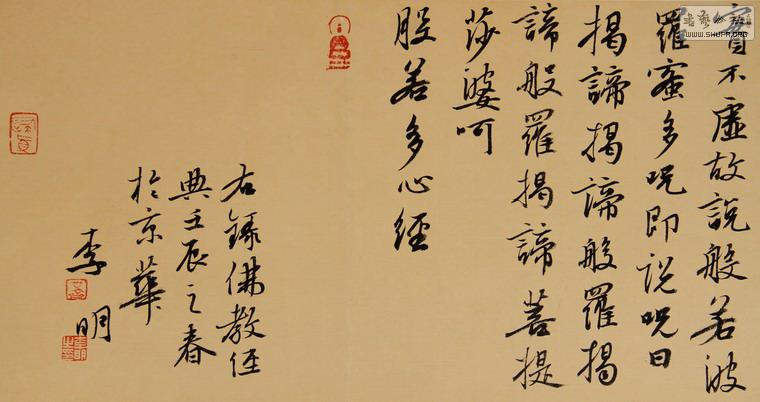 實不虛故說般若波
羅蜜多呪即說呪曰
揭諦揭諦般羅揭
諦般羅揭諦菩提
莎婆呵
般若多心經
右錄佛教経
典壬辰之春
於京華
李明
WWW.SHUFA.ORG